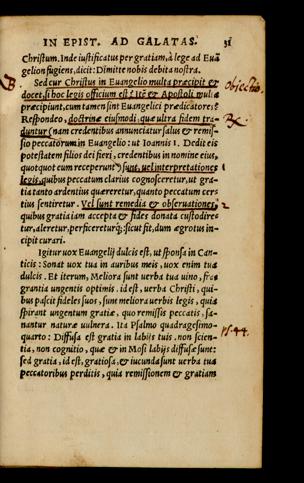 IN EPIST. AD GALATAS. 31
Christum. Inde iustificatus per gratiam, à lege ad Euā
gelion fugiens, dicit: Dimitte nobis debita nostra.
B Sed cur Christus in Euangelio multa præcipit &
docet, si hoc legis officium est? Itē & Apostoli multa
præcipiunt, cum tamen sint Euangelici prædicatores?
Respondeo, doctrinæ eiusmodi, quæ ultra fidem tra-
duntur (nam credentibus annunciatur salus & remis-
sio peccatorum in Euangelio: ut Ioannis 1. Dedit eis
potestatem filios dei fieri, credentibus in nomine eius,
quotquot eum receperunt) sunt, uel interpretationes
legis, quibus peccatum clarius cognosceretur, ut gra-
tia tanto ardentius quæreretur, quanto peccatum cer-
tius sentiretur. Vel sunt remedia & obseruationes,
quibus gratia iam accepta & fides donata custodire-
tur, aleretur, perficereturq;: sicut fit, dum ægrotus in-
cipit curari.
Igitur uox Euangelij dulcis est, ut sponsa in Can-
ticis: Sonat uox tua in auribus meis, uox enim tua
dulcis. Et iterum, Meliora sunt ubera tua uino, fra-
grantia ungentis optimis. id est, uerba Christi, qui-
bus pascit fideles suos, sunt meliora uerbis legis, quia
spirant ungentum gratiæ, quo remissis peccatis, sa-
nantur naturæ uulnera. Ita Psalmo quadragesimo-
quarto: Diffusa est gratia in labijs tuis. non scien-
tia, non cognitio, quæ & in Mosi labijs diffusæ sunt:
sed gratia, id est, gratiosa, & iucunda sunt uerba tua
peccatoribus perditis, quia remissionem & gratiam
obiectio.
Rx.
1
2
ps. 44.